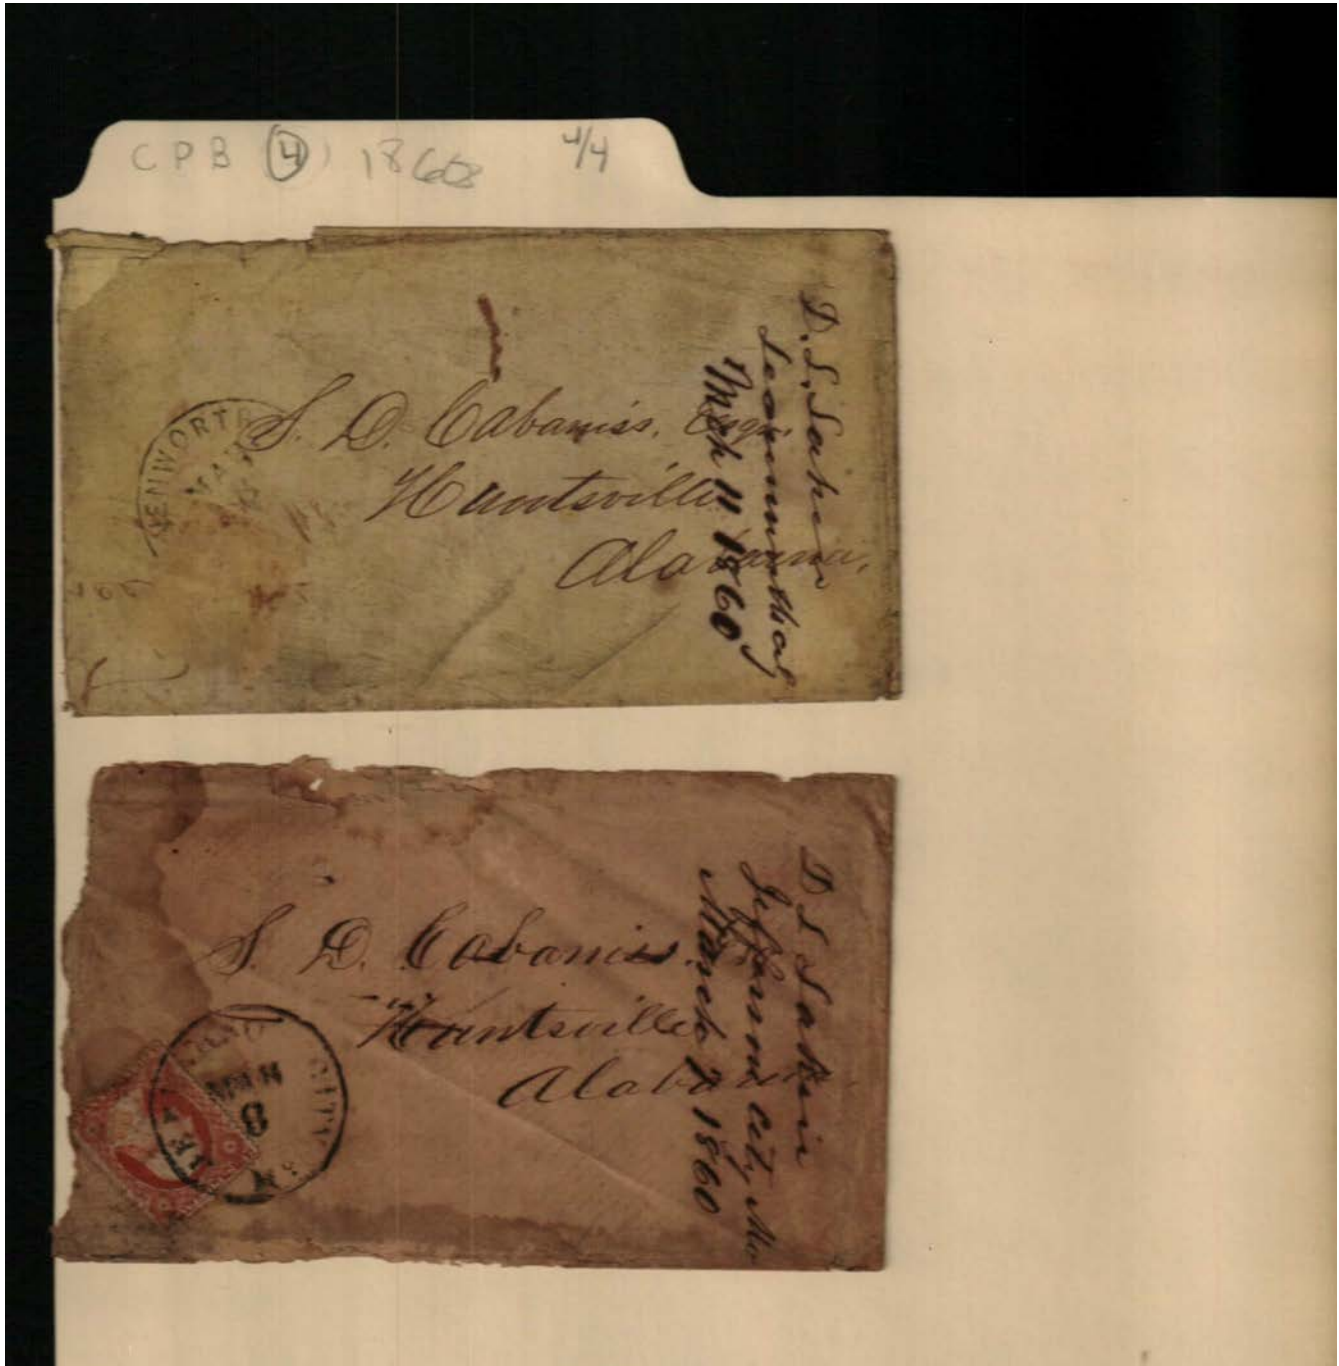 CPB (4) 1860 4/4
S. D. Cabaniss, Esqr.
Huntsville
Alabama,
D. L. Lakin
Leavenworth City
Mch 11 1860
ENWORTH
S. D. Cabaniss.
Huntsville
Alabama.
D L Lakin
Jefferson City Mo
March 7 1860
CITY
8